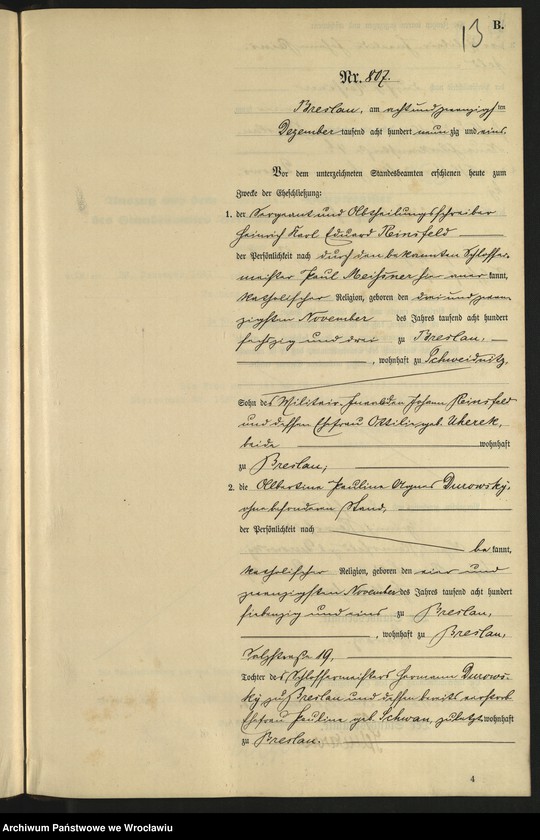 13 B.
Nr. 807.
Breslau, am achtundzwanzigsten
Dezember tausend acht hundert neunzig und eins.
Vor dem unterzeichneten Standesbeamten erschienen heute zum
Zwecke der Eheschließung:
1. der Sergeant und Abtheilungsschreiber
Heinrich Karl Eduard Reinsfeld
der Persönlichkeit nach durch den bekannten Schlosser-
meister Paul Meißner hier anerkannt,
katholischer Religion, geboren den drei und zwan-
zigsten November des Jahres tausend acht hundert
sechszig und drei zu Breslau,
, wohnhaft zu Schweidnitz,
Sohn des Militair-Invaliden Johann Reinsfeld
und dessen Ehefrau Ottilie geb. Uherek,
beide wohnhaft
zu Breslau;
2. die Albertine Pauline Agnes Durowsky,
ohne besonderen Stand,
der Persönlichkeit nach
bekannt,
katholischer Religion, geboren den vier und
zwanzigsten November des Jahres tausend acht hundert
siebenzig und eins zu Breslau,
, wohnhaft zu Breslau,
Salzstraße 19,
Tochter des Schlossermeisters Hermann Durows-
ky zu Breslau und dessen bereits verstorb.
Ehefrau Pauline geb. Schwan, zuletzt wohnhaft
zu Breslau.
4
Archiwum Państwowe we Wrocławiu